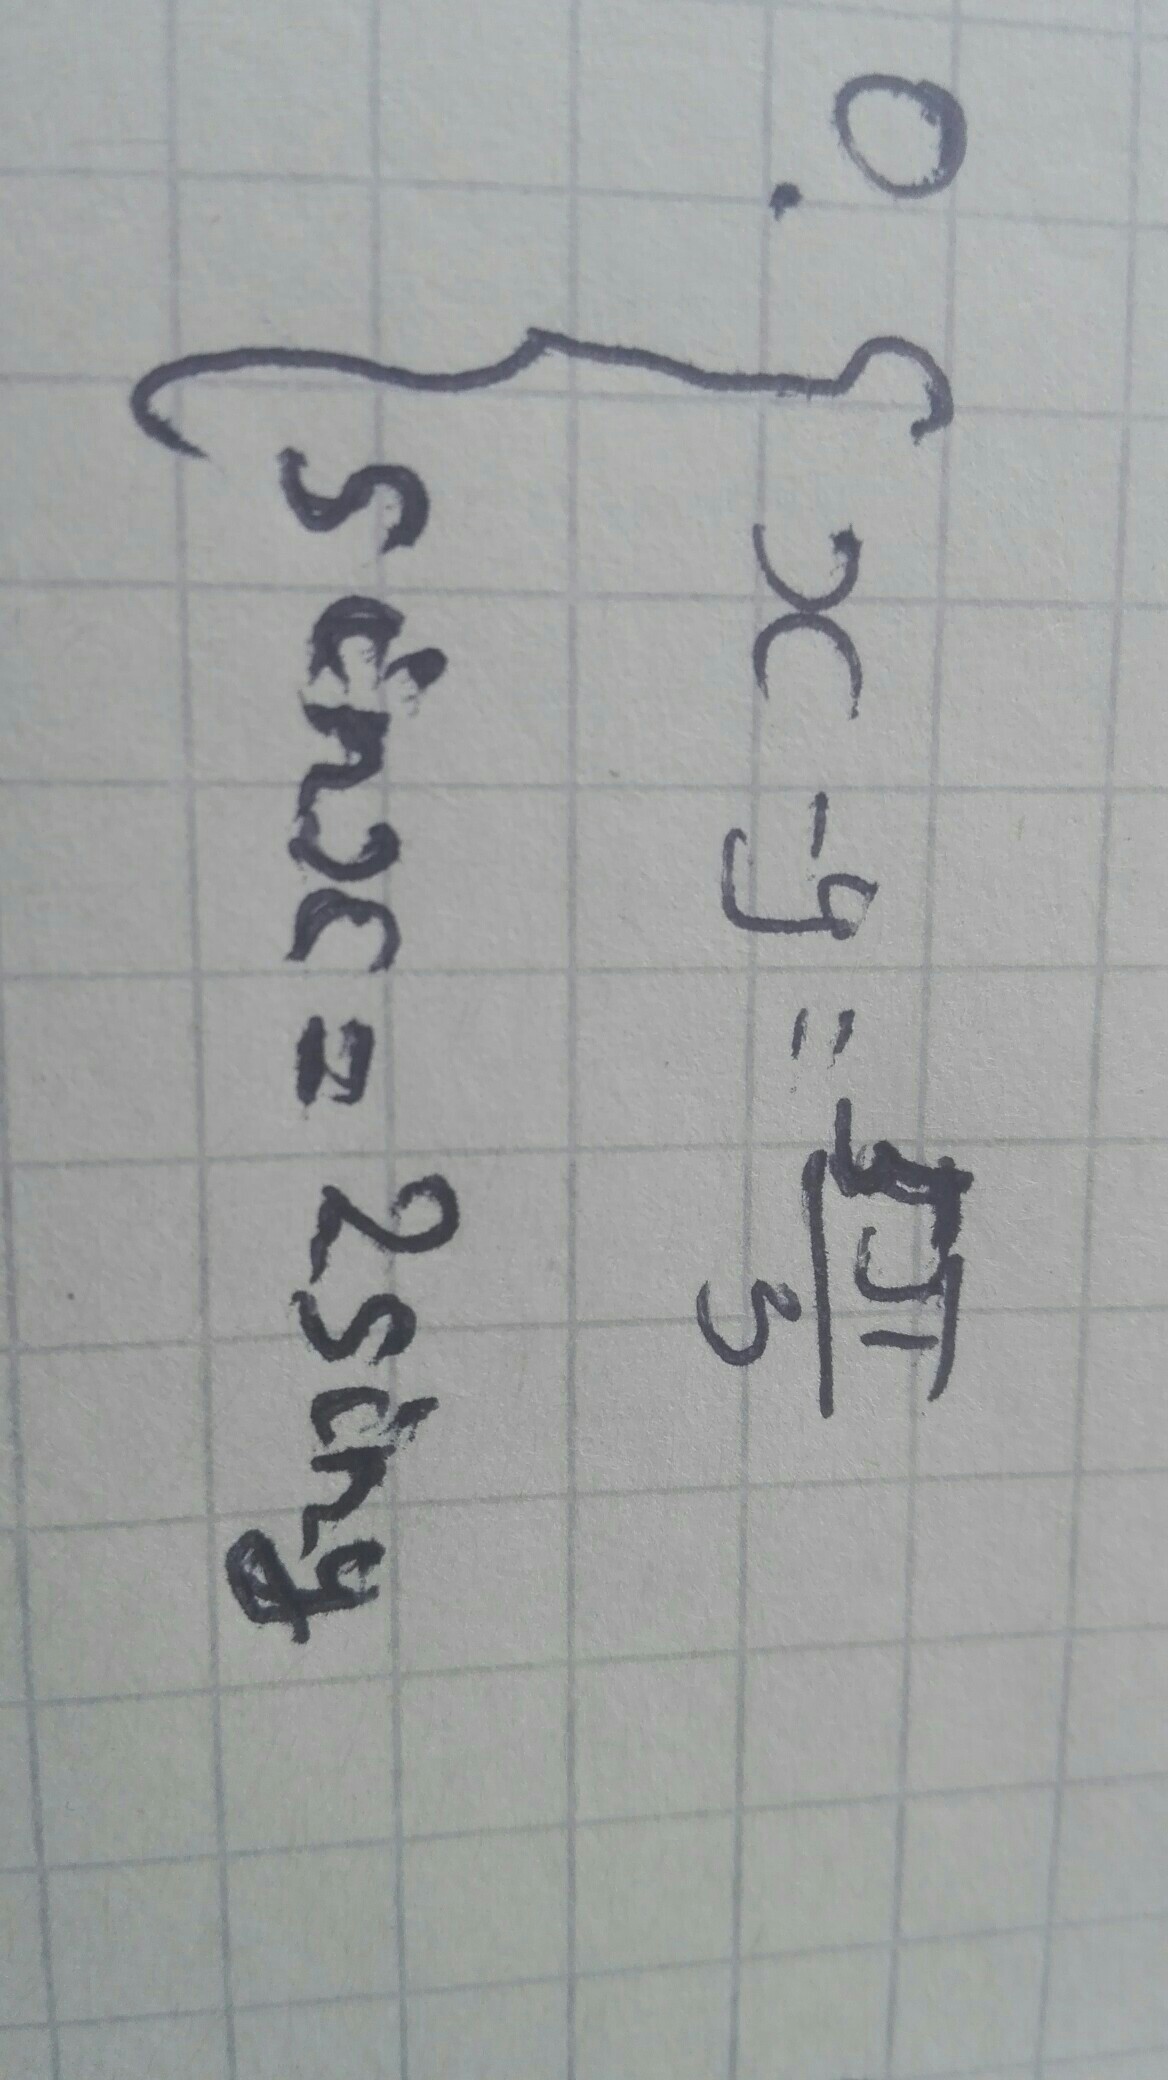 0.
x - y = 5π/3
sinx = 2siny